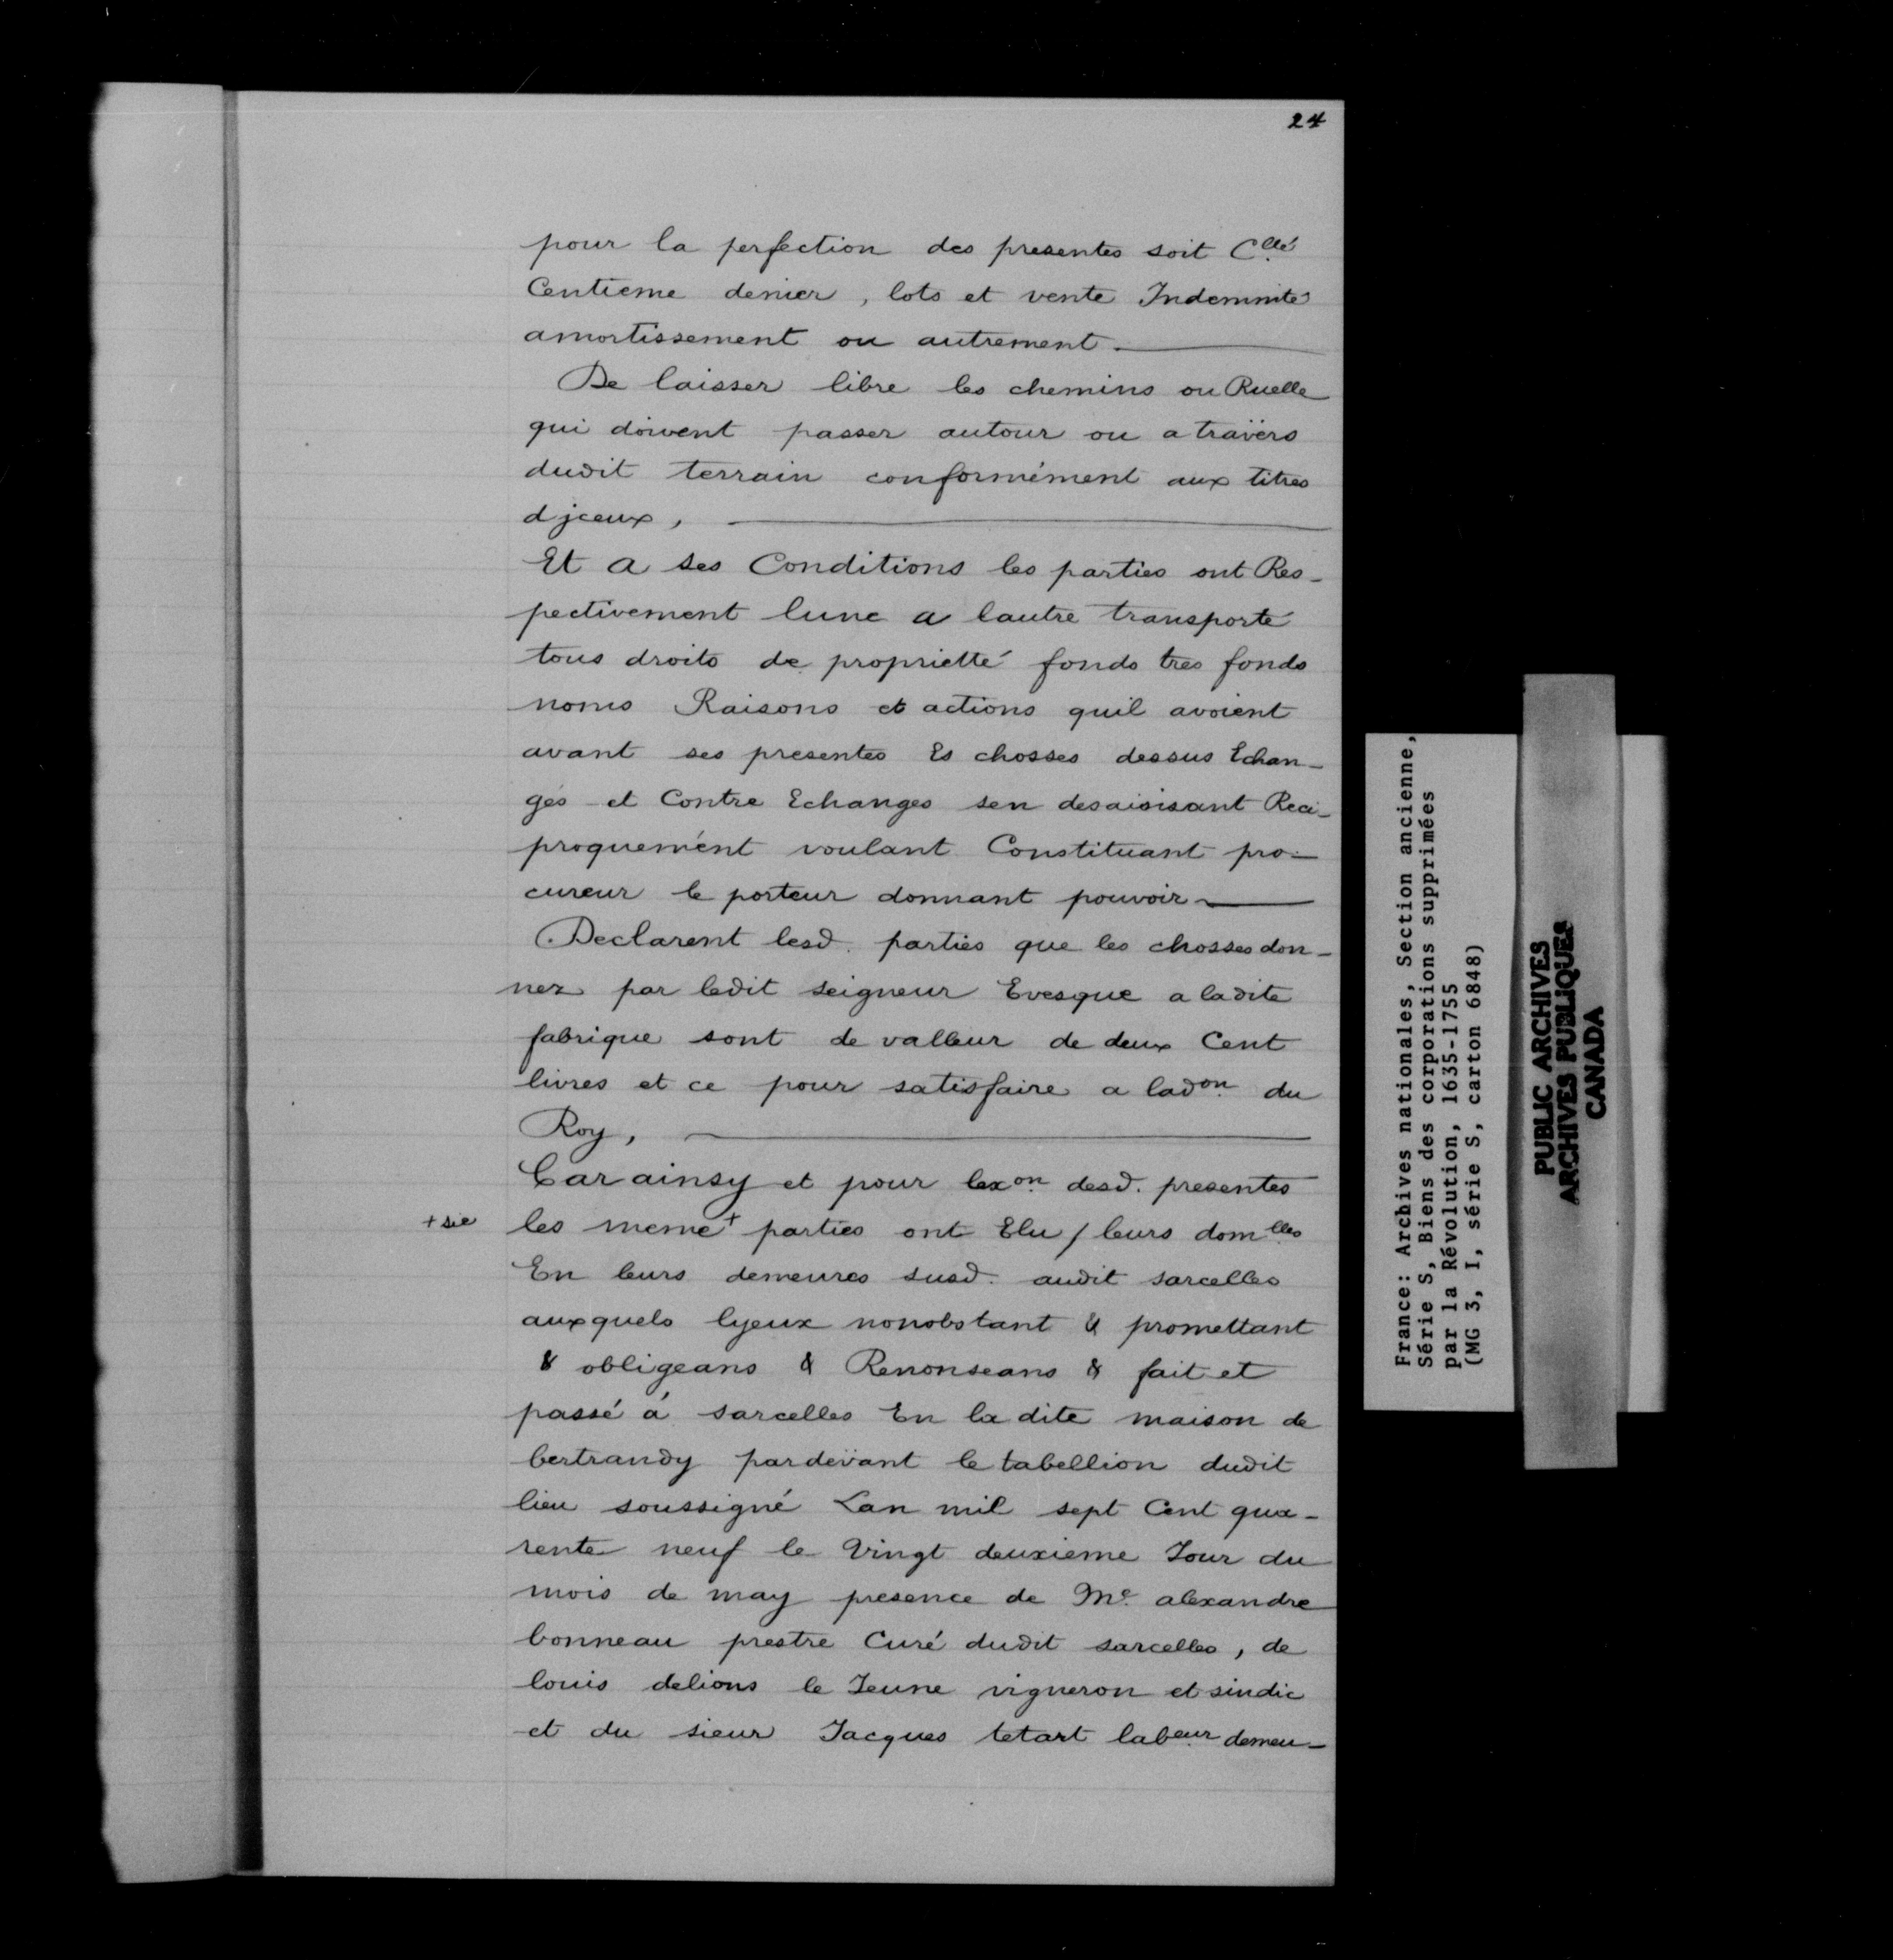 24
pour la perfection des presentes soit C.llé
Centieme denier, lots et vente Indemnité
amortissement ou autrement.
De laisser libre les chemins ou Ruelle
qui doivent passer autour ou a travers
dudit terrain conformément aux titres
djceux,
Et a ses Conditions les parties ont Res-
pectivement lune a lautre transporté
tous droits de proprietté fonds tres fonds
noms Raisons et actions quil avoient
avant ses presentes Es chosses dessus Echan-
gés et Contre Echanges sen desaisisant Reci-
proquement voulant Constituant pro-
cureur le porteur donnant pouvoir
Declarent lesd. parties que les chosses don-
nez par ledit seigneur Evesque a ladite
fabrique sont de valleur de deux Cent
livres et ce pour satisfaire a ladon. du
Roy,
Car ainsy et pour lexon. desd. presentes
+ sic les meme + parties ont Elu / leurs domlles
En leurs demeures susd. audit sarcelles
auxquels lyeux nonobstant & promettant
& obligeans & Renonseans & fait et
passé á sarcelles En la dite maison de
bertrandy pardevant le tabellion dudit
lieu soussigné Lan mil sept Cent qua-
rente neuf le Vingt deuxieme Jour du
mois de may presence de Me. alexandre
bonneau prestre Curé dudit sarcelles, de
louis delions le Jeune vigneron et sindic
et du sieur Jacques tetart labeur demeu-
France: Archives nationales, Section ancienne,
Série S, Biens des corporations supprimées
par la Révolution, 1635-1755
(MG 3, I, série S, carton 6848)
PUBLIC ARCHIVES
ARCHIVES PUBLIQUES
CANADA